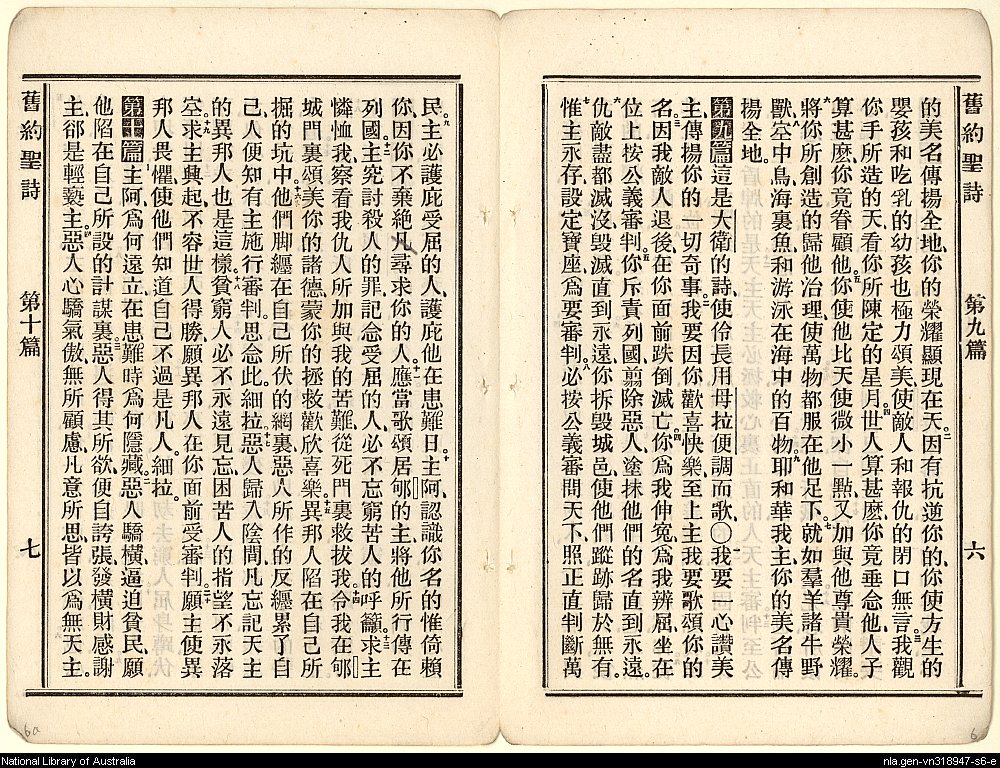 舊約聖詩 第九篇 六
的美名傳揚全地、你的榮耀顯現在天。二因有抗逆你的、你使方生的
嬰孩和吃乳的幼孩也極力頌美、使敵人和報仇的閉口無言。三我觀
你手所造的天、看你所陳定的星月。四世人算甚麽、你竟垂念他、人子
算甚麽、你竟眷顧他。五你使他比天使微小一點、又加與他尊貴榮耀。
六將你所創造的歸他治理、使萬物都服在他足下。七就如羣羊諸牛野
獸、八空中鳥、海裏魚、和游泳在海中的百物。九耶和華我主、你的美名傳
揚全地。
第九篇 這是大衛的詩、使伶長用母拉便調而歌、〇一我要一心讚美
主、傳揚你的一切奇事。二我要因你歡喜快樂、至上主、我要歌頌你的
名。三因我敵人退後、在你面前跌倒滅亡。四你爲我伸寃、爲我辨屈、坐在
位上、按公義審判。五你斥責列國、翦除惡人、塗抹他們的名、直到永遠。
六仇敵盡都滅沒、毀滅直到永遠、你拆毀城邑、使他們蹤跡歸於無有。
七惟主永存、設定寶座、爲要審判。八必按公義審問天下、照正直判斷萬
民。九主必護庇受屈的人、護庇他在患難日。十主阿、認識你名的惟倚賴
你、因你不棄絕凡尋求你的人。十一應當歌頌居郇的主、將他所行傳在
列國。十二主究討殺人的罪、記念受屈的人、必不忘窮苦人的呼籲。十三求主
憐恤我、察看我仇人所加與我的苦難、從死門裏救拔我。十四令我在郇
城門裏頌美你的諸德、蒙你的拯救歡欣喜樂。十五異邦人陷在自己所
掘的坑中、他們脚纏在自己所伏的網裏。十六惡人所作的反纏累了自
己、人便知有主施行審判、思念此、細拉。十七惡人歸入陰間、凡忘記天主
的異邦人也是這樣。十八貧窮人必不永遠見忘、困苦人的指望不永落
空。十九求主興起、不容世人得勝、願異邦人在你面前受審判。二十願主使異
邦人畏懼、使他們知道自己不過是凡人。細拉。
第十篇 一主阿、爲何遠立、在患難時爲何隱藏。二惡人驕橫、逼迫貧民、願
他陷在自己所設的計謀裏。三惡人得其所欲、便自誇張、發橫財、感謝
主、郤是輕褻主。四惡人心驕氣傲、無所顧慮、凡意所思、皆以爲無天主。
舊約聖詩 第十篇 七
6a
6
National Library of Australia
nla.gen-vn318947-s6-e